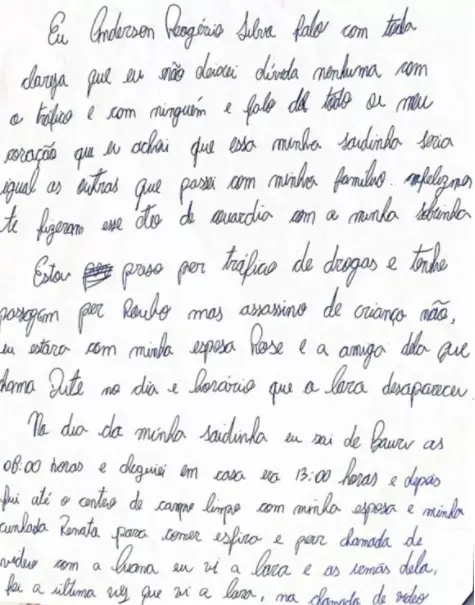 Eu Anderson Rogério Silva falo com toda
clareza que eu não deixei dívida nenhuma com
o tráfico e com ninguém e falo de todo os meu
coração que eu achei que essa minha saidinha seria
igual as outras que passei com minha família. infelizmen
te fizeram esse ato de covardia com a minha sobrinha
Estou preso por tráfico de drogas e tenho
passagem por Roubo mas assassino de criança não,
eu estava com minha esposa Rose e a amiga dela que
chama no dia e horário que a lara desapareceu.
No dia da minha saidinha eu sai de Bauru as
08:00 horas e cheguei em casa era 13:00 horas e depois
fui até o centro de campo limpo com minha esposa e minha
cunhada Renata para comer esfira e por chamada de
video com a luana eu vi a lara e as irmãs dela,
foi a última vez que vi a lara, na chamada de video